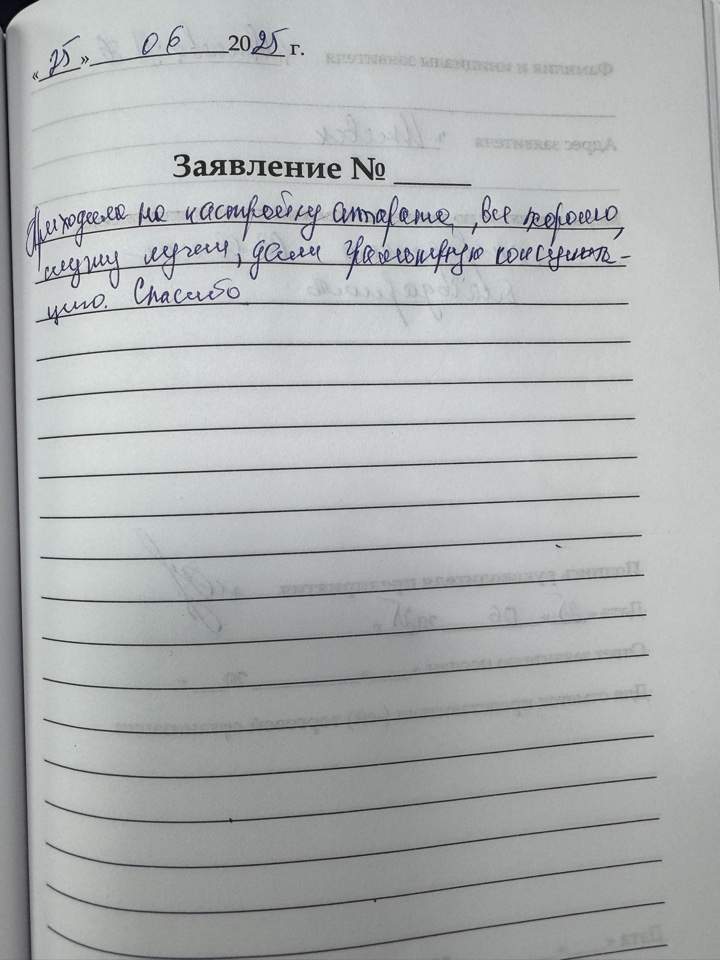 «25» 06 2025 г.
Заявление № ____
Приходила на настройку аппарата, все хорошо,
слышу лучше, дали грамотную консульта-
цию. Спасибо